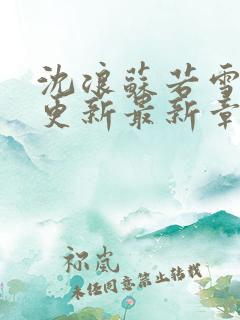 沈浪苏若雪
更新最新章
祢岚
未经同意禁止转载